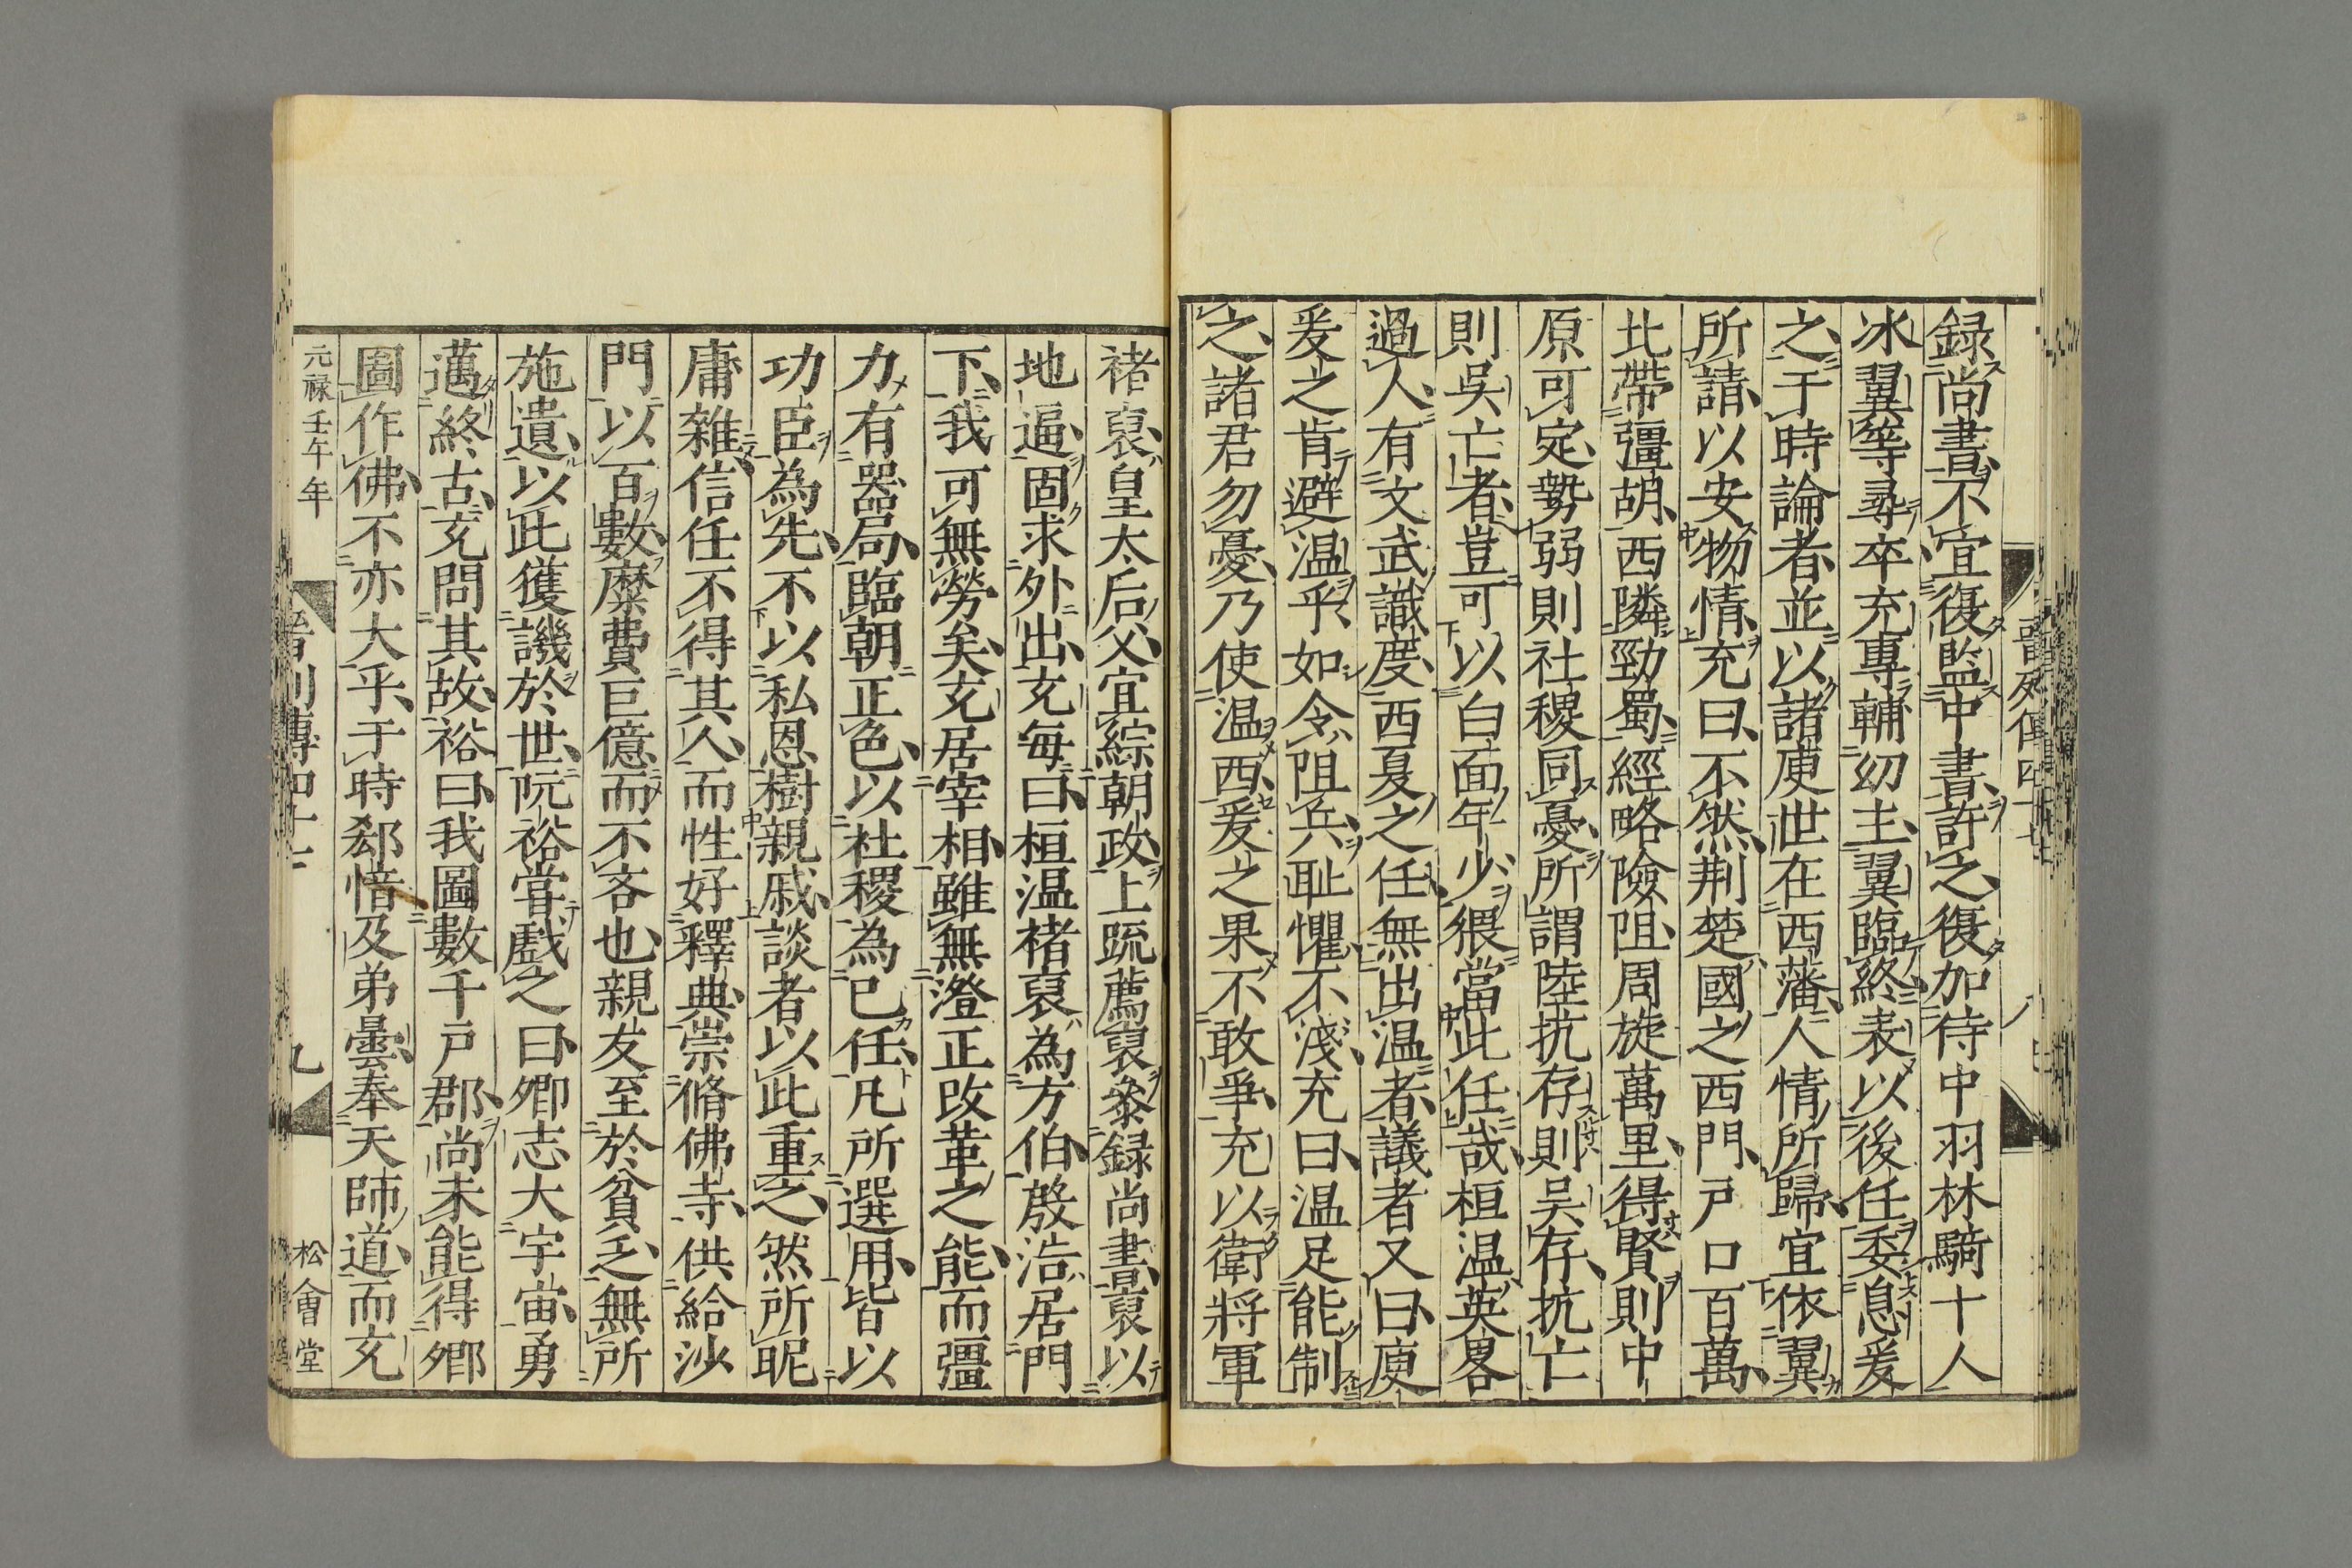 録尚書不宜復監中書許之復加侍中羽林騎十人
冰翼等尋卒充專輔幼主翼臨終表以後任委息爰
之于時論者並以諸庾世在西藩人情所歸宜依翼
所請以安物情充曰不然荆楚國之西門戸口百萬
北帶彊胡西隣勁蜀經略險阻周旋萬里得賢則中
原可定勢弱則社稷同憂所謂陸抗存則吳存抗亡
則吳亡者豈可以白面年少猥當此任哉桓温英畧
過人有文武識度西夏之任無出温者議者又曰庾
爰之肯避温乎如令阻兵耻懼不淺充曰温足能制
之諸君勿憂乃使温西爰之果不敢爭充以衛將軍
褚裒皇太后父宜綜朝政上疏薦裒叅録尚書裒以
地逼固求外出充每曰桓温褚裒為方伯殷浩居門
下我可無勞矣充居宰相雖無澄正改革之能而彊
力有器局臨朝正色以社稷為己任凡所選用皆以
功臣為先不以私恩樹親戚談者以此重之然所昵
庸雜信任不得其人而性好釋典崇脩佛寺供給沙
門以百數糜費巨億而不吝也親友至於貧乏無所
施遺以此獲譏於世阮裕甞戲之曰卿志大宇宙勇
邁終古充問其故裕曰我圖數千戸郡尚未能得卿
圖作佛不亦大乎于時郄愔及弟曇奉天師道而充
元禄壬午年
晉列傳四十七
九
松會堂